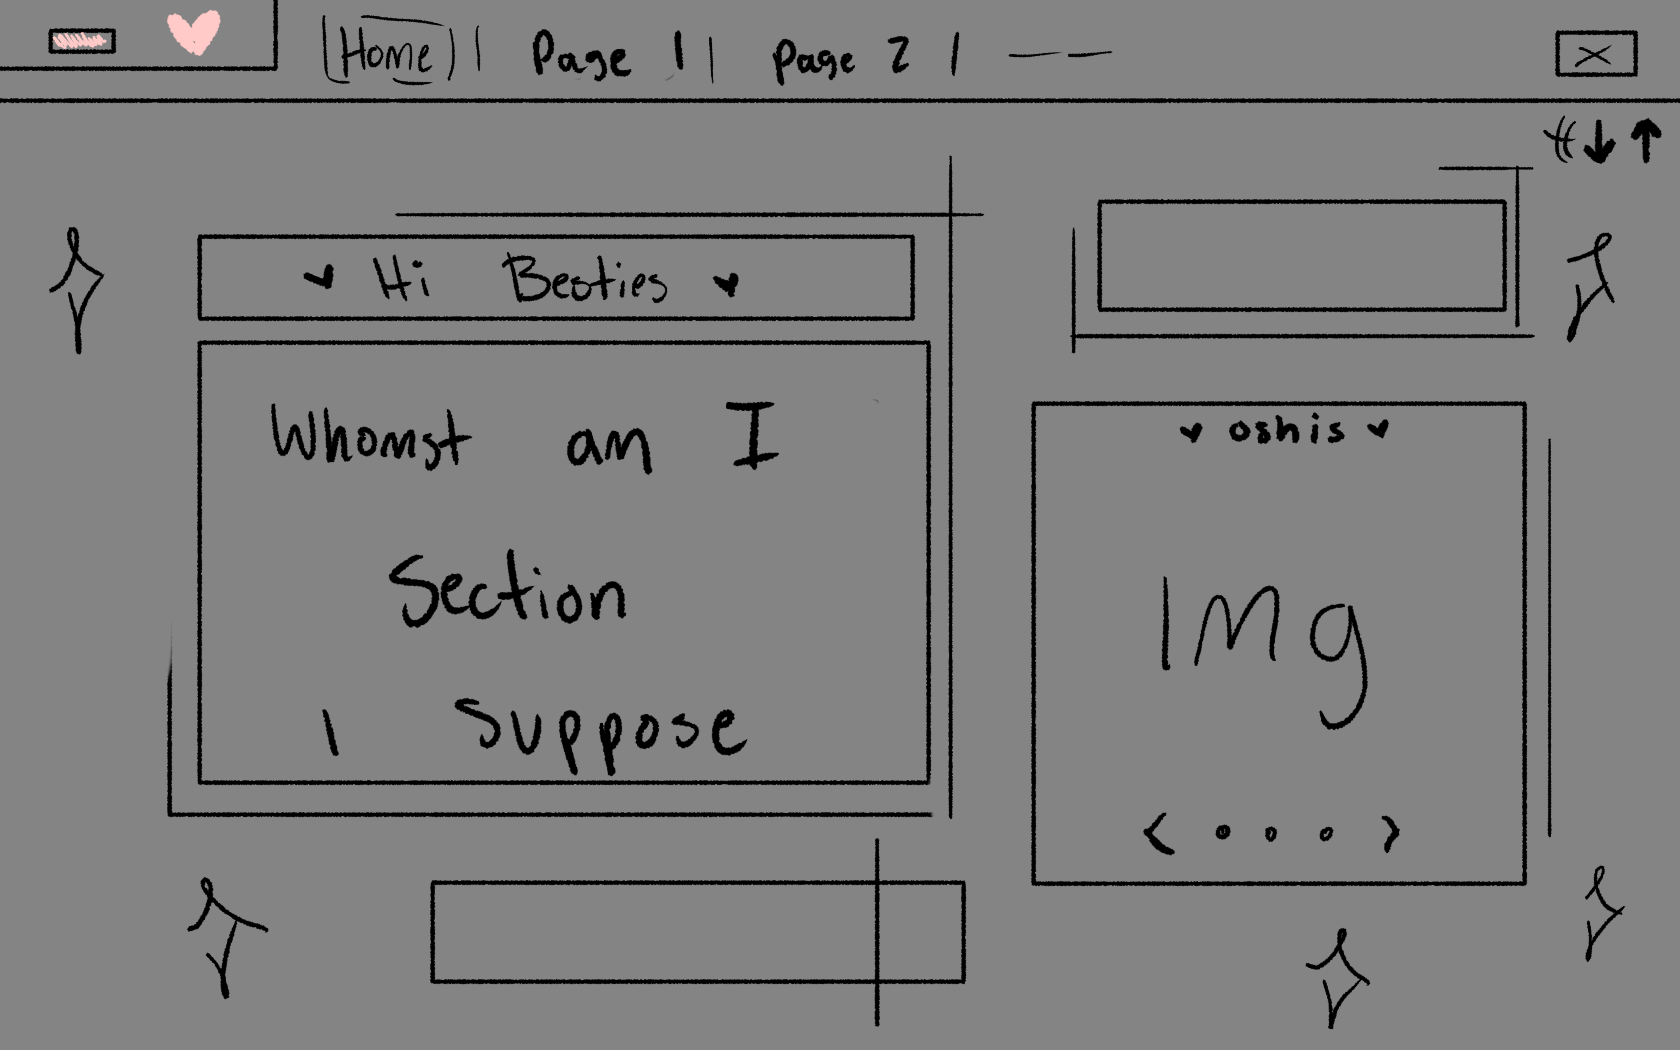 Home | Page 1 | Page 2 | — —
♥ Hi Besties ♥
Whomst am I
Section
I Suppose
♥ oshis ♥
Img
< o o o >